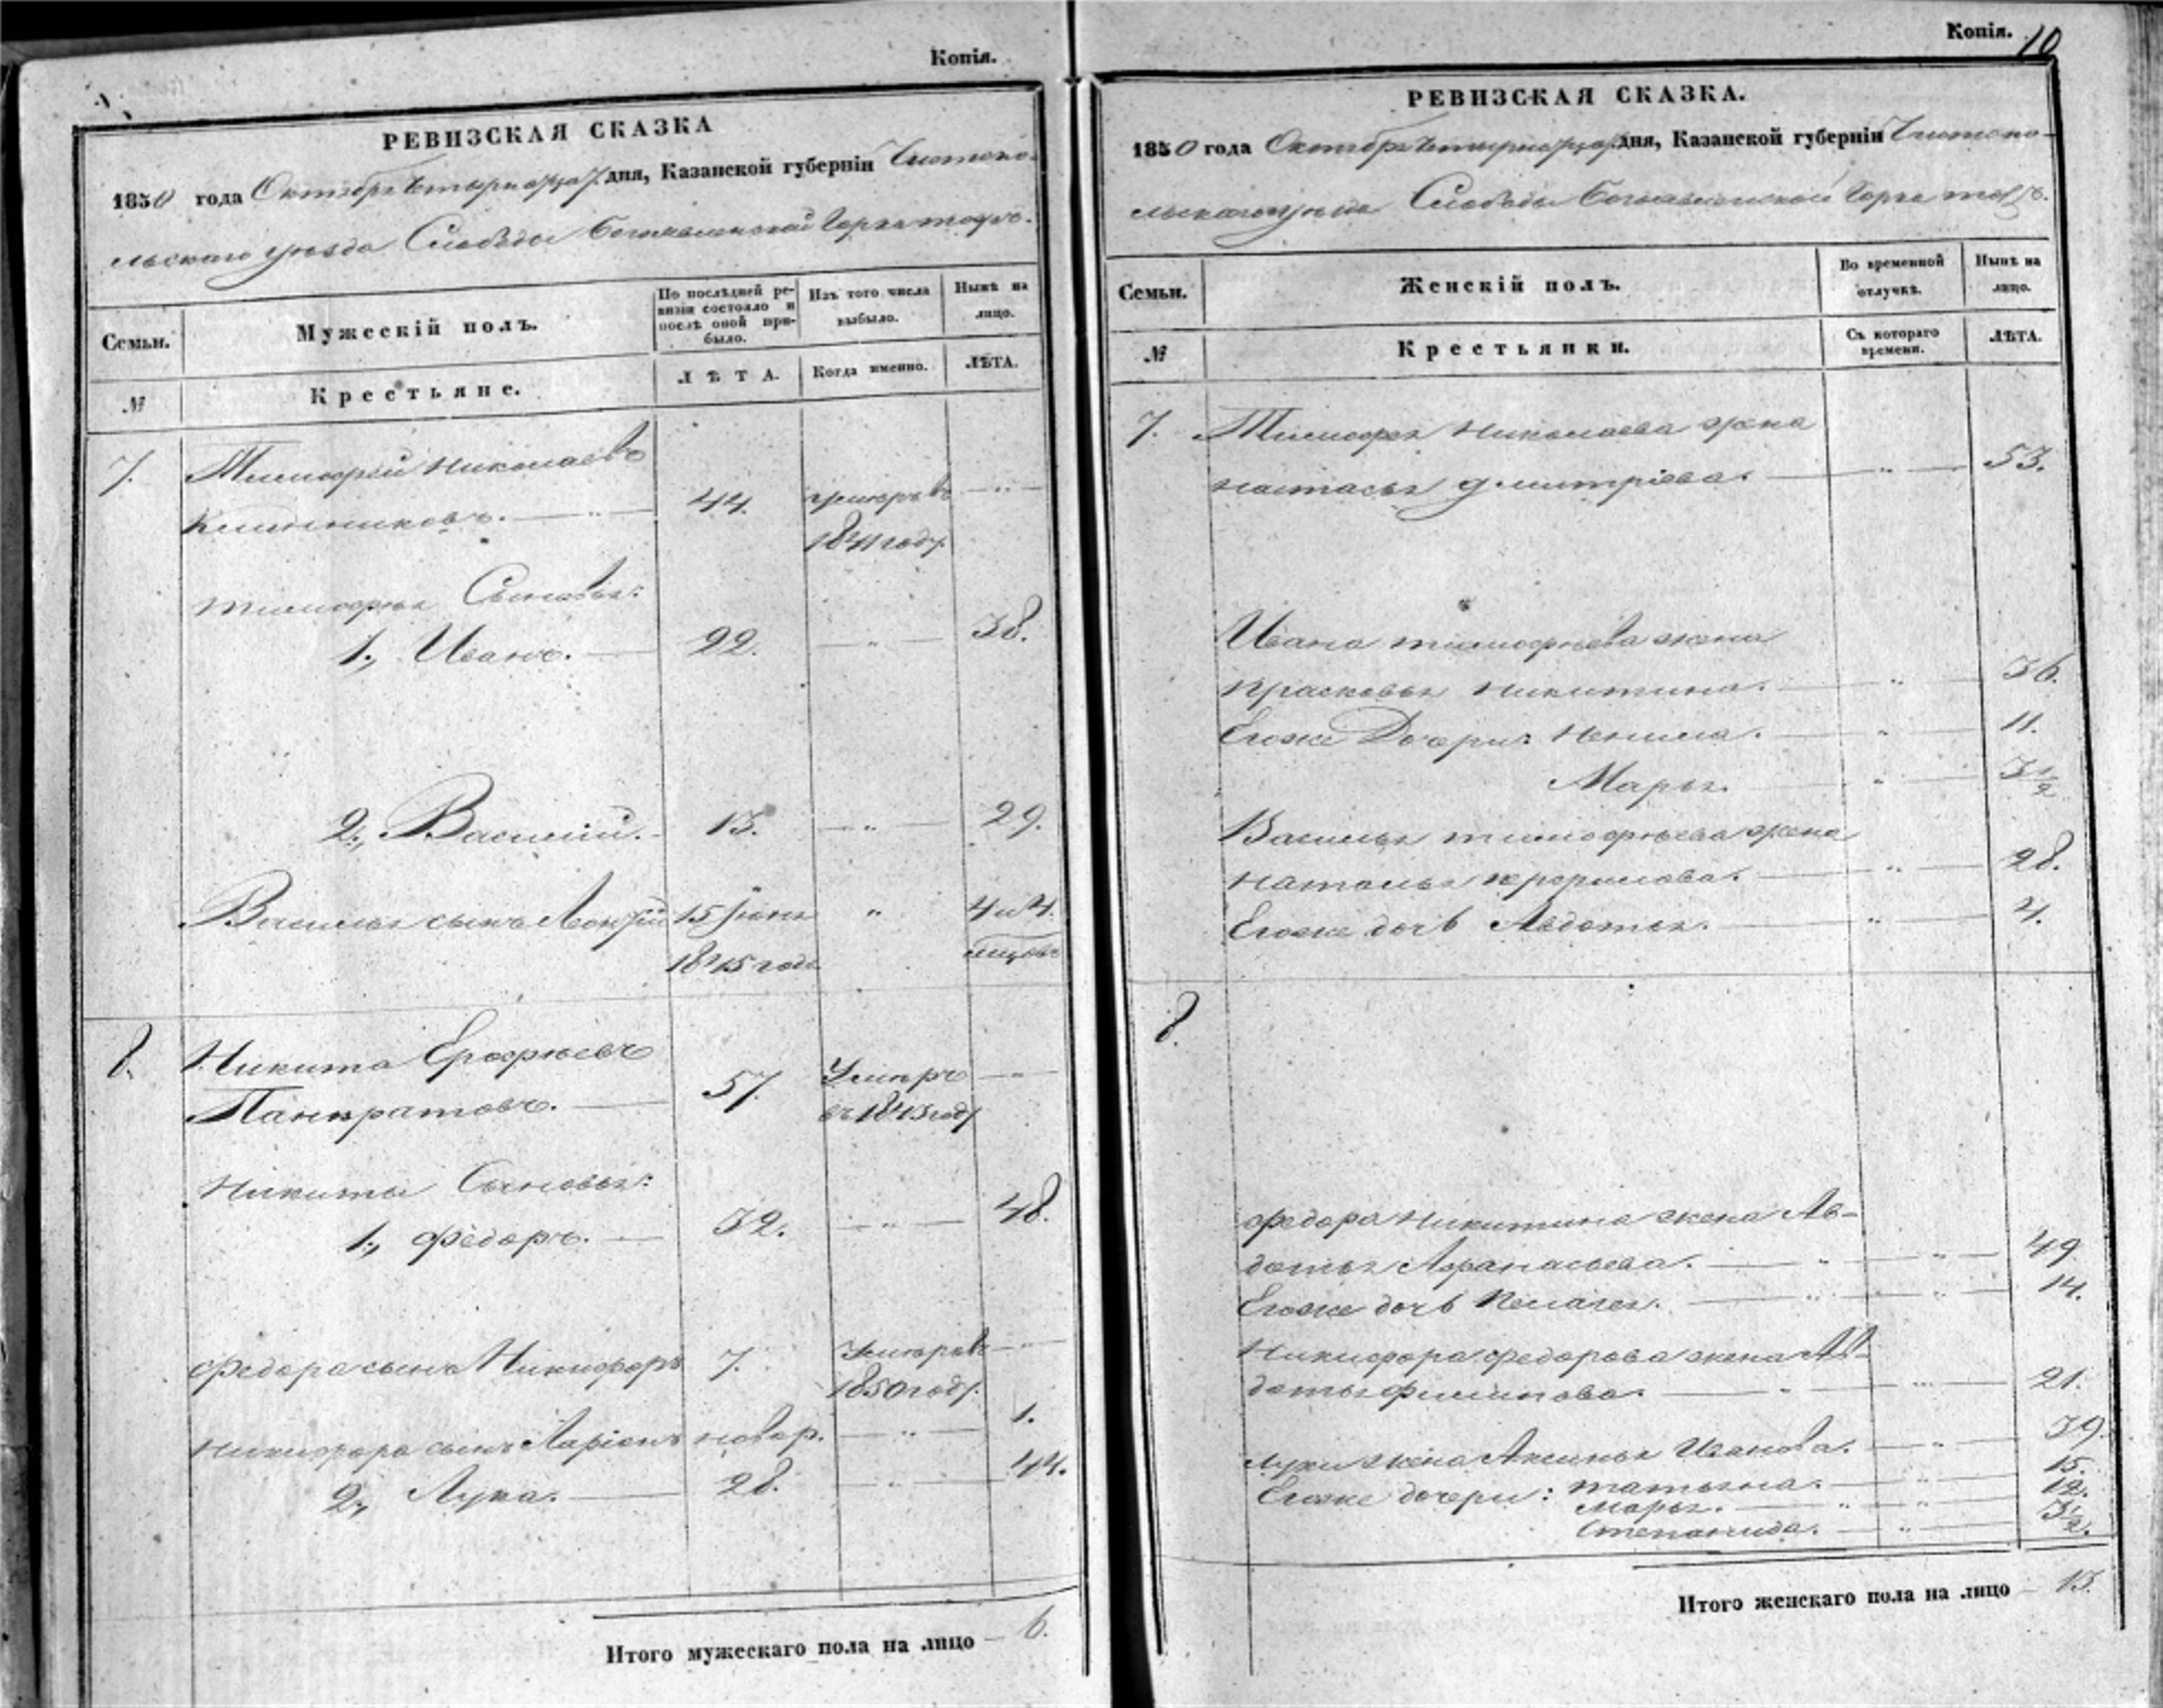 Копія.
РЕВИЗСКАЯ СКАЗКА
1850 года Октября дня, Казанской губерніи Чистопо-
льскаго уѣзда Слободы Богоявленской Горка тожъ.
Семьи.
Мужескій полъ.
По послѣдней ре-
визіи состояло и
послѣ оной при-
было.
Изъ того числа
выбыло.
Нынѣ на
лицо.
№
Крестьяне.
ЛѢТА.
Когда именно.
ЛѢТА.
7.
Тимофей Николаевъ
44. умеръ въ — " —
1841 году.
Тимофея Сыновья:
1., Иванъ. — 22. — " — 38.
2., Василій. — 13. — " — 29.
Василья сынъ 15 Іюня " 4 и 4.
1845 года мѣсяцовъ
8. Никита Ерофѣевъ
Панкратовъ. — 57. Умеръ — " —
въ 1845 году
Никиты Сыновья:
1., Федоръ. — 32. — " — 48.
Федора сынъ Никифоръ 7. Умеръ въ — " —
1850 году.
Никифора сынъ Ларіонъ новор. — " — 1.
2., Лука. — 28. — " — 44.
Итого мужескаго пола на лицо — 6.
Копія. 10
РЕВИЗСКАЯ СКАЗКА.
1850 года Октября дня, Казанской губерніи Чистопо-
льскаго уѣзда Слободы Богоявленской Горка тожъ.
Семьи.
Женскій полъ.
Во временной
отлучкѣ.
Нынѣ на
лицо.
№
Крестьянки.
Съ котораго
времени.
ЛѢТА.
7. Тимофея Николаева жена
Настасья Дмитріева. — " — 53.
Ивана Тимофѣева жена
Прасковья Никитина. — " — 36.
Егоже Дочери: Ненила. — " 11.
Марья. " — 3 1/2
Василья Тимофѣева жена
Наталья — " — 28.
Егоже дочь Авдотья. — " — 4.
8.
Федора Никитина жена Ав-
дотья Афанасьева. — " — " — 49.
Егоже дочь Пелагея. — " — " — 14.
Никифора Федорова жена Ав-
дотья Филипова. — " — " — 21.
Луки жена Аксинья Иванова. — " — 39.
Егоже дочери: Татьяна. — " — 15.
Марья. — " — " — 12.
Степанида. — " — 3 1/2.
Итого женскаго пола на лицо — 13.